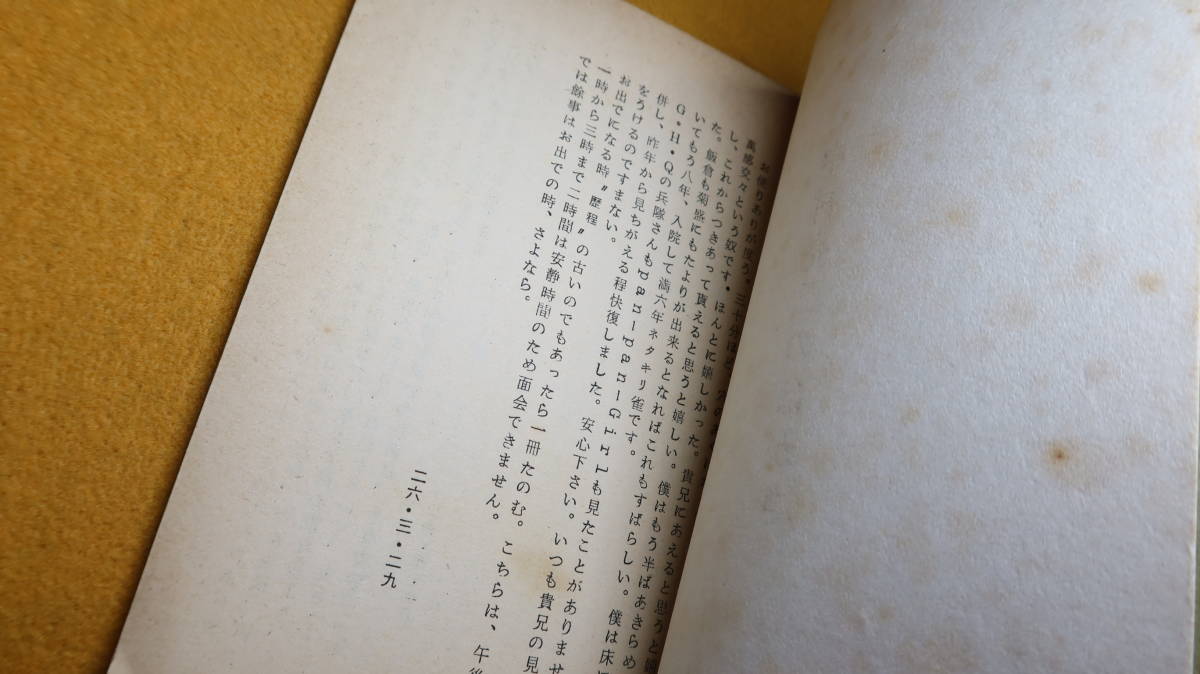 お便りありが度う。三十分ほど、
萬感交々という奴です。ほんとに嬉しかった。貴兄にあえると思うと嬉
し、これからつきあって貰えると思うと嬉しい。僕はもう半ばあきらめ
た。飯倉も菊盛にもたよりが出来るとなればこれもすばらしい。僕は床
いてもう八年、入院して満六年ネタキリ雀です。
G・H・Qの兵隊さんもpan―pan―Girlも見たことがありませ
併し、昨年から見ちがえる程快復しました。安心下さい。いつも貴兄の見
をうけるのですまない。
お出でになる時〝歴程〟の古いのでもあったら一冊たのむ。こちらは、午後
一時から三時まで二時間は安静時間のため面会できません。
では餘事はお出での時、さよなら。
二六・三・二九